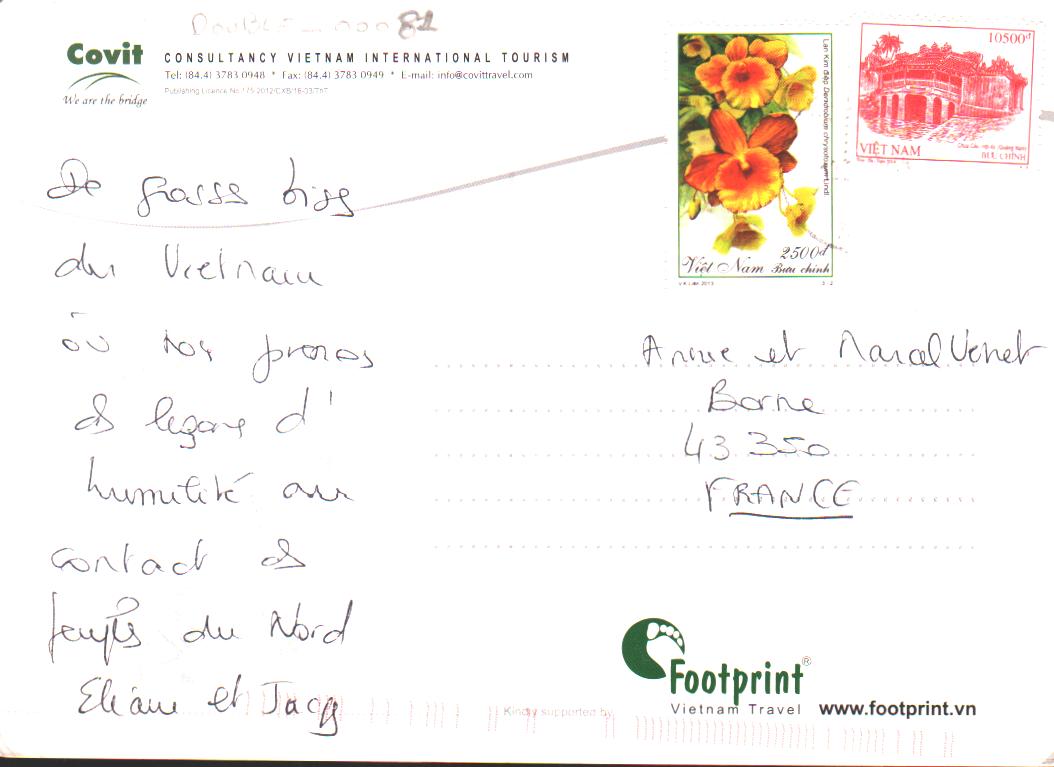 DOUBLE - 00081
Covit
We are the bridge
CONSULTANCY VIETNAM INTERNATIONAL TOURISM
Tel: (84.4) 3783 0948 * Fax: (84.4) 3783 0949 * E-mail: info@covittravel.com
Publishing Licence No:175-2012/CXB/18-03/ThT
Lan Kim điệp Dendrobium chrysotoxum Lindl
2500đ
Việt Nam Bưu chính
10500đ
VIỆT NAM
BƯU CHÍNH
De grosses bises
du Vietnam
où nous prenons
des leçons d'
humilité au
contact des
peuples du Nord
Eliane et Jacq
Annie et Marcel Venet
Borne
43 350
FRANCE
Kindly supported by
Footprint®
Vietnam Travel
www.footprint.vn